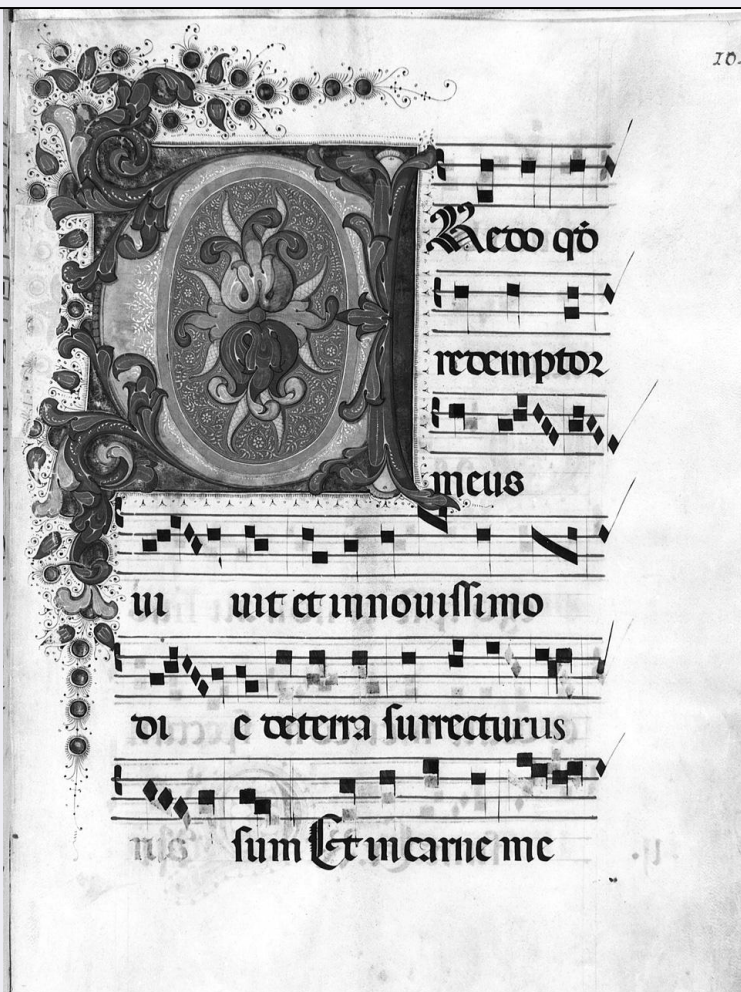 10
CRedo qđ
redemptor
meus
ui uit et in nouissimo
di e de terra surrecturus
rus sum Et in carne me